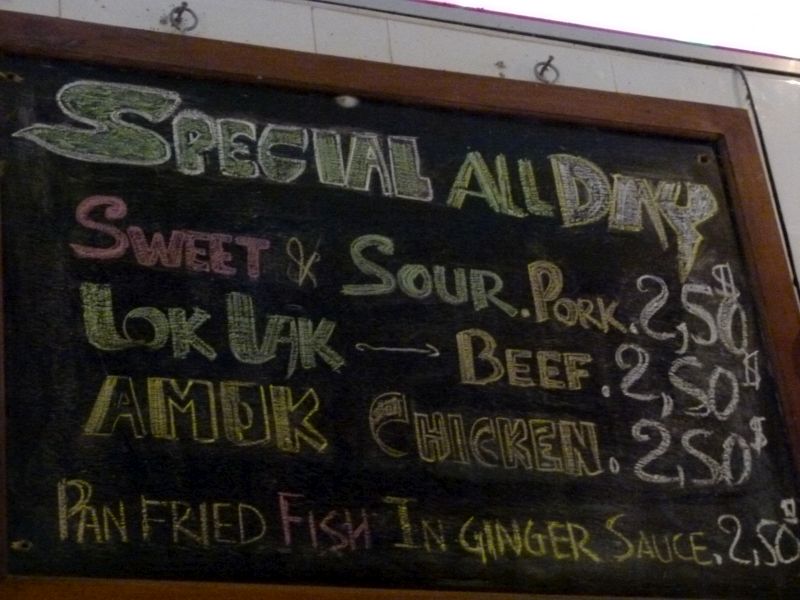 SPECIAL ALL DAY
SWEET & SOUR. PORK. 2,50$
LOK LAK → BEEF. 2,50$
AMOK CHICKEN. 2,50$
PAN FRIED FISH IN GINGER SAUCE. 2,50$